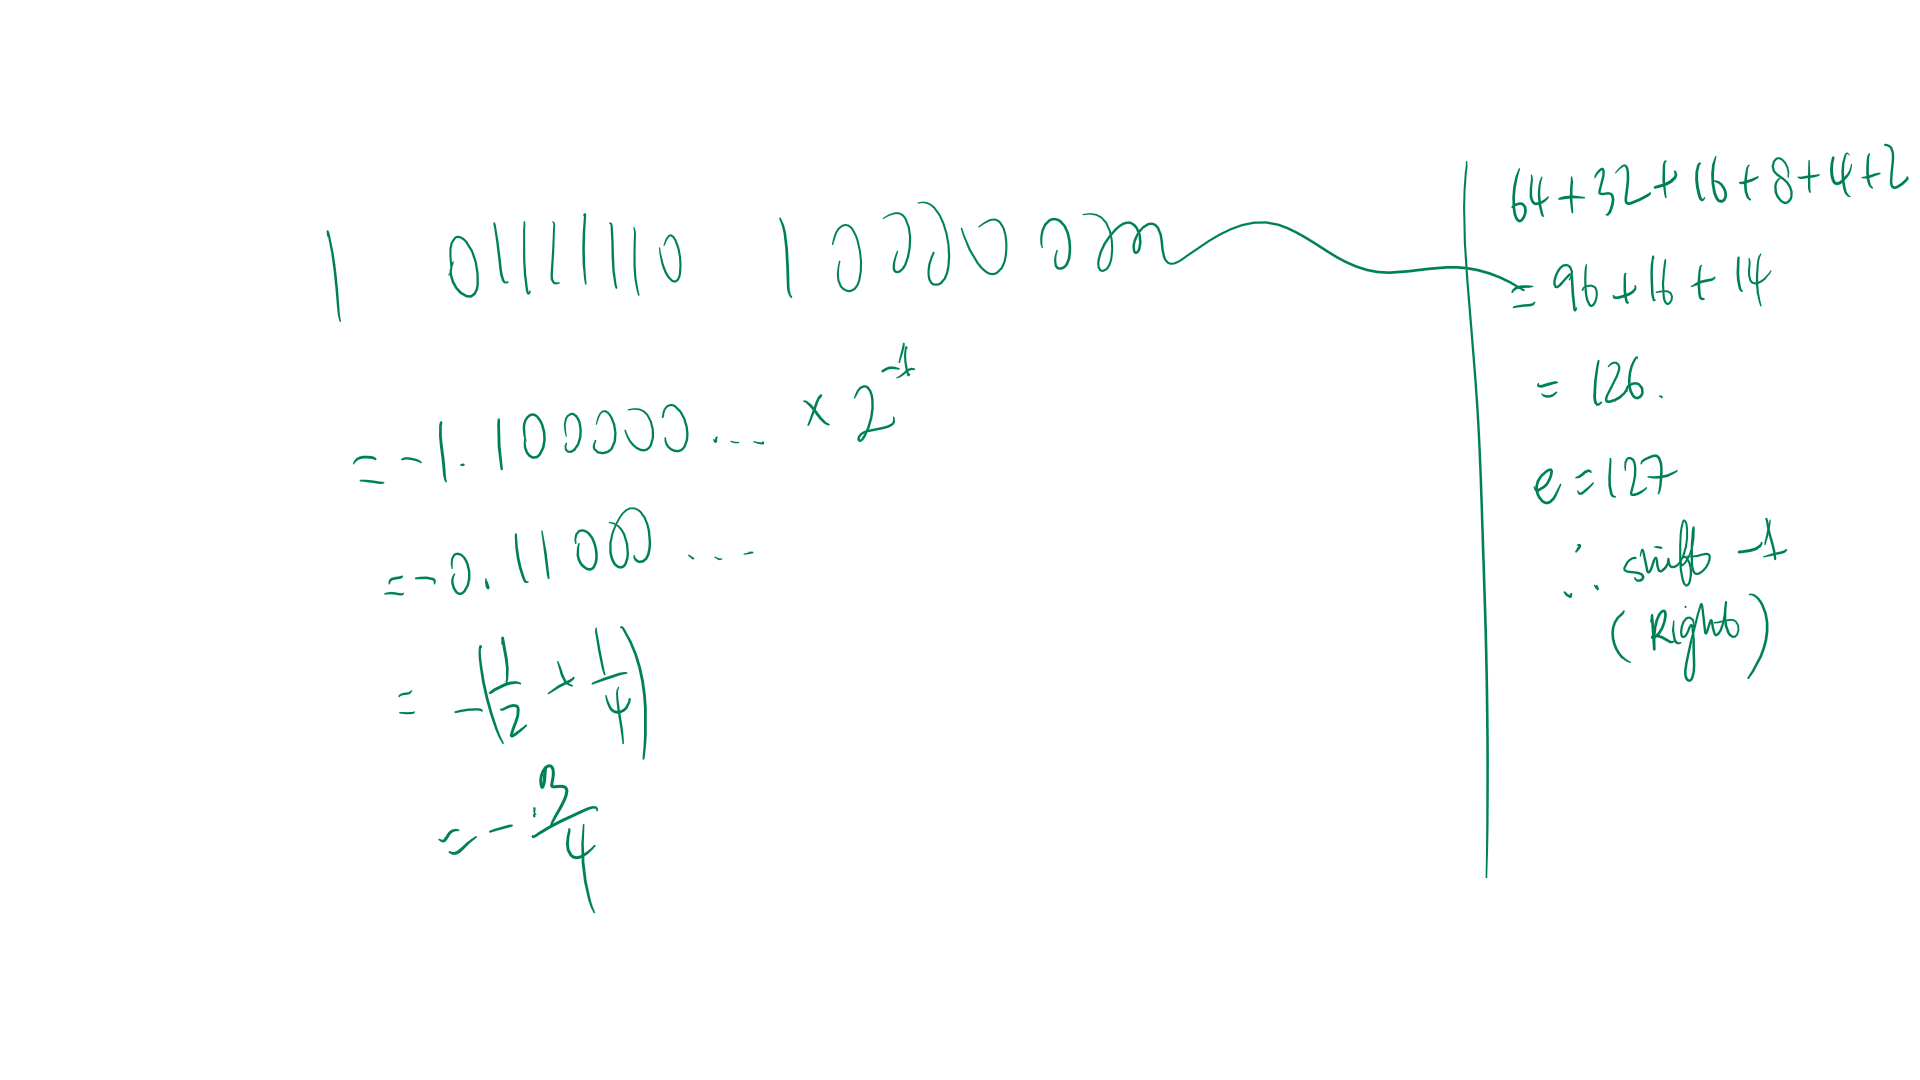 1 01111110 10000000
= -1.100000... × 2^-1
= -0.11000...
= -(1/2 + 1/4)
= -3/4
64+32+16+8+4+2
= 96+16+14
= 126.
e=127
∴ shift -1
(Right)